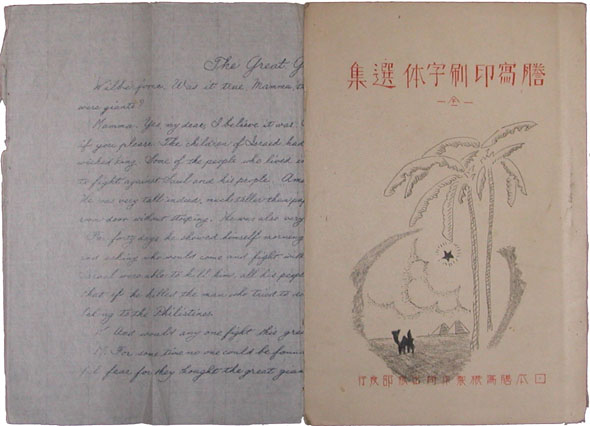 The Great G
Wilberforce. Was it true, Mamma,
were giants?
Mamma. Yes my dear, I believe it was.
if you please. The children of Israel had
wicked king. Some of the people who lived
to fight against Saul and his people.
He was very tall indeed, much taller than
room door without stoping. He was also very
For forty days he showed himself morning
and asking who would come and fight with
Israel were able to kill him, all his people
that if he killed the man who tried to
belong to the Philistines.
And would any one fight this grea
M. For some time no one could be foun
fear for they thought the great gian
謄寫印刷字体選集
—全—
日本謄寫